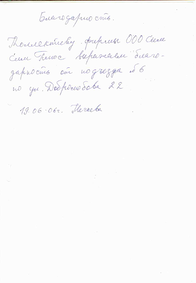 Благодарность.
Коллективу фирмы ООО Сила
Сила Плюс выражаем благо-
дарность от подъезда №6
по ул. Добролюбова 22
19.06.06г.